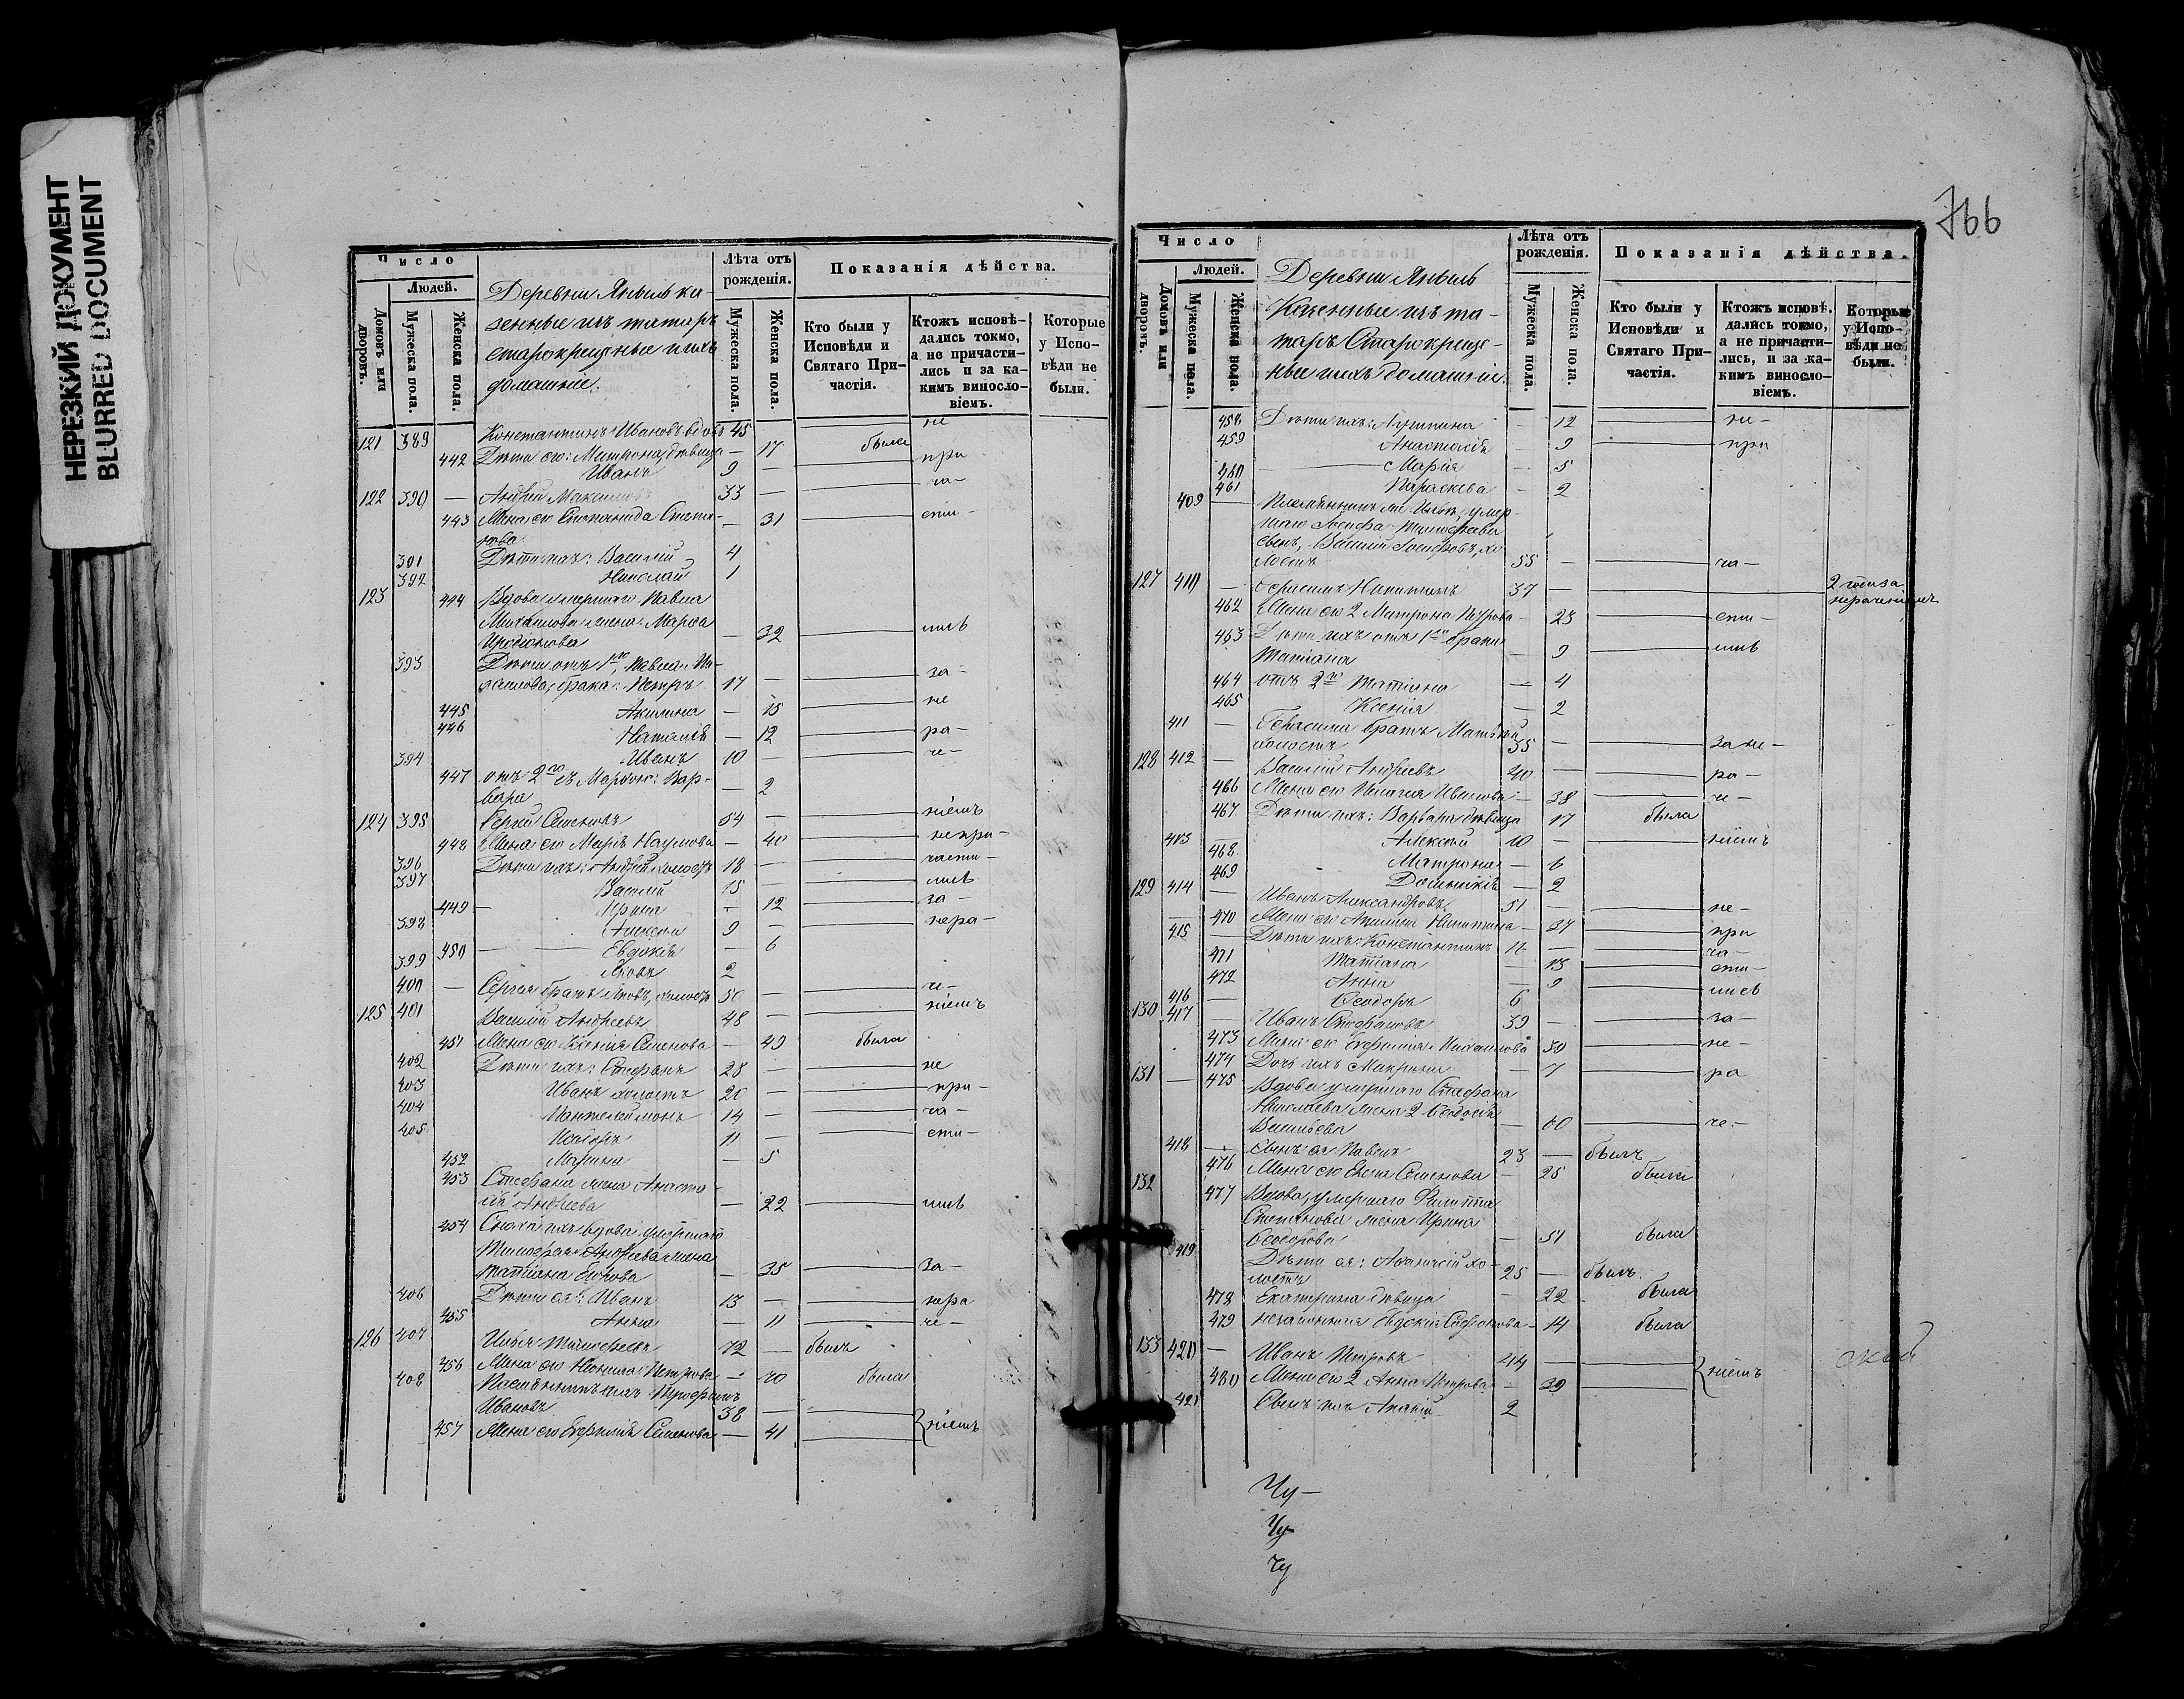 НЕРЕЗКИЙ ДОКУМЕНТ
BLURRED DOCUMENT
Число
Людей.
Домовъ или дворовъ.
Мужеска пола.
Женска пола.
Деревни Яныль ка-
зенные изъ татаръ
старокрещеные и ихъ
домашніе.
Лѣта отъ рожденія.
Мужеска пола.
Женска пола.
Показанія дѣйства.
Кто были у Исповѣди и Святаго При-частія.
Ктожъ исповѣ-дались токмо, а не причасти-лись и за ка-кимъ виносло-віемъ.
Которые у Испо-вѣди не были.
121 389 Константинъ Ивановъ вдовъ 45 не
442 Дѣти его: Матрона, дѣвица — 17 была
Иванъ 9 — при
122 390 — Андрей Максимовъ 33 — ча-
443 Жена его Степанида — 31 сти-
391 Дѣти ихъ: Василій 4
392 Николай 1
123 444 Вдова умершаго Павла
Михайлова жена Марѳа
— 32 лись
393 Дѣти отъ 1го Павла Ми-
хайлова брака: Петръ 17 — за-
445 Акилина — 15 не
446 Наталія — 12 ра-
394 Иванъ 10 — че-
447 отъ 2го съ Марѳою: Вар-
вара — 2
124 395 Сергей Семеновъ 54 — ніемъ
448 Жена его Марія Наумова — 40 не при-
396 Дѣти ихъ: Андрей холостъ 18 — части-
397 Василій 15 — лись
449 — Ирина — 12 за-
398 Алексѣй 9 — нера-
450 — Евдокія — 6
399 Яковъ 2
400 — Сергея братъ Яковъ, холостъ 50 — че-
125 401 Василій Андреевъ 48 — ніемъ
451 Жена его Ксенія Семенова — 49 была
402 Дѣти ихъ: Стефанъ 28 — не
403 Иванъ холостъ 20 — при-
404 Пантелеймонъ 14 — ча-
405 11 — сти-
452 Марина — 5
453 Стефана жена Анаста-
сія Андреева — 22 лись
454 Сноха ихъ вдова умершаго
Тимофея Андреева жена
Татіана — 35 за-
406 Дѣти ея: Иванъ 13 — нера
455 Анна — 11 че-
126 407 Илья Тимофеевъ 72 — былъ
456 Жена его Петрова — 70 была
408 Племянникъ ихъ
Ивановъ 38 —
457 Жена его Евфимія Семенова — 41 ніемъ
766
Число
Людей.
Домовъ или дворовъ.
Мужеска пола.
Женска пола.
Деревни Яныль
Казенные изъ та-
таръ Старокреще-
ные и ихъ домашніе.
Лѣта отъ рожденія.
Мужеска пола.
Женска пола.
Показанія дѣйства.
Кто были у Исповѣди и Святаго При-частія.
Ктожъ исповѣ-дались токмо, а не причасти-лись, и за ка-кимъ виносло-віемъ.
Которые у Испо-вѣди не были.
458 Дѣти ихъ: — 12 не-
459 Анастасія — 9 при
460 — Марія — 5
461 Параскева — 2
409 — Племянникъ умер-
шаго Іосифа Тимофеева
сынъ, Василій Іосифовъ, хо-
лостъ 55 — ча-
127 410 — Герасимъ Никитинъ 37 — 2 года
нераченіемъ
462 Жена его 2 Матрона — 23 сти-
463 Дѣти ихъ отъ 1го брака
Татіана — 9 лись
464 отъ 2го Татіана — 4
465 Ксенія — 2
411 — Герасима братъ Матвѣй
холостъ 35 — за не-
128 412 — Василій Андреевъ 40 — ра-
466 Жена его Пелагея Иванова — 38 че-
467 Дѣти ихъ: Варвара дѣвица 17 была
413 — Алексѣй 10 — ніемъ
468 Матрона — 6
469 Домникія — 2
129 414 — Иванъ Александровъ 51 — не-
470 Жена его Акилина Никитина — 37 при
415 — Дѣти ихъ: Константинъ 16 — ча-
471 Татіана — 13 сти-
472 Анна — 9 лись
416 — Ѳеодоръ 6
130 417 — Иванъ Стефановъ 39 — за-
473 Жена его Евфимія Михайлова 30 не-
474 Дочь ихъ Макрина — 7 ра
131 — 475 Вдова умершаго Стефана
Николаева жена 2 Ѳеодосія
Васильева — 60 че-
418 — Сынъ ея Павелъ 23 — былъ
476 Жена его Елена Семенова — 25 была
132 477 Вдова, умершаго Филиппа
Степанова жена Ирина
Ѳеодорова — 51 была
419 Дѣти ея: Аѳанасій хо-
лостъ 25 — былъ
478 Екатерина дѣвица — 22 была
479 незаконная Евдокія Стефанова — 14 была
133 420 — Иванъ Петровъ 44 —
480 Жена его 2 Анна Петрова — 39 ніемъ
421 Сынъ ихъ Ананій 2
ской
Чу-
Чу-
Чу